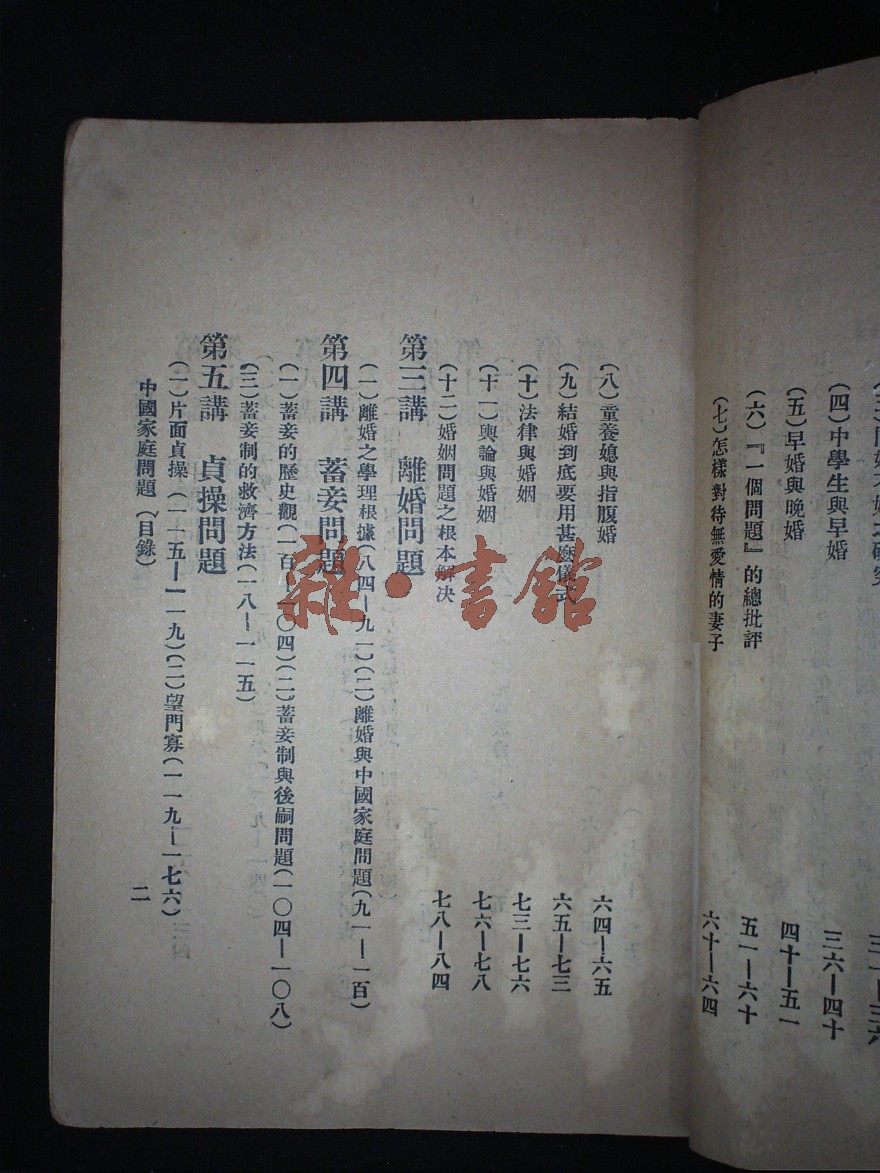 (四)中學生與早婚 三六—四十
(五)早婚與晚婚 四十—五一
(六)『一個問題』的總批評 五一—六十
(七)怎樣對待無愛情的妻子 六十—六四
(八)童養媳與指腹婚 六四—六五
(九)結婚到底要用甚麽儀式 六五—七三
(十)法律與婚姻 七三—七六
(十一)輿論與婚姻 七六—七八
(十二)婚姻問題之根本解决 七八—八四
第三講 離婚問題
(一)離婚之學理根據(八四—九一)(二)離婚與中國家庭問題(九一—一百)
第四講 蓄妾問題
(一)蓄妾的歷史觀(一百—一〇四)(二)蓄妾制與後嗣問題(一〇四—一〇八)
(三)蓄妾制的救濟方法(一八—一一五)
第五講 貞操問題
(一)片面貞操(一一五—一一九)(二)望門寡(一一九—一七六)
中國家庭問題(目錄) 二
雜·書館